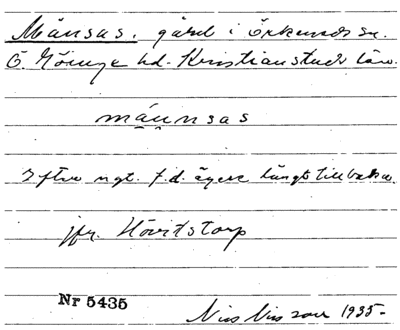 Månsas, gård i Örkeneds sn.
Ö. Göinge hd. Kristianstads län.
månsas
Efter ngt. f.d. ägare långt tillbaka.
jfr. Hövitstorp
Nr 5435
Nils Nilsson 1935-